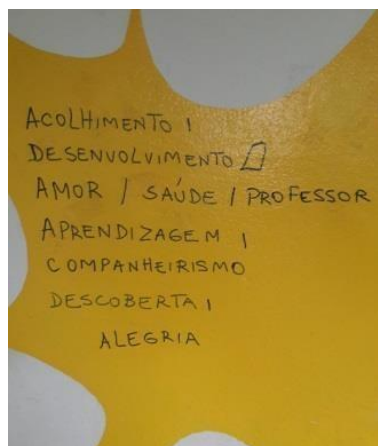 ACOLHIMENTO |
DESENVOLVIMENTO
AMOR / SAÚDE / PROFESSOR
APRENDIZAGEM |
COMPANHEIRISMO
DESCOBERTA |
ALEGRIA